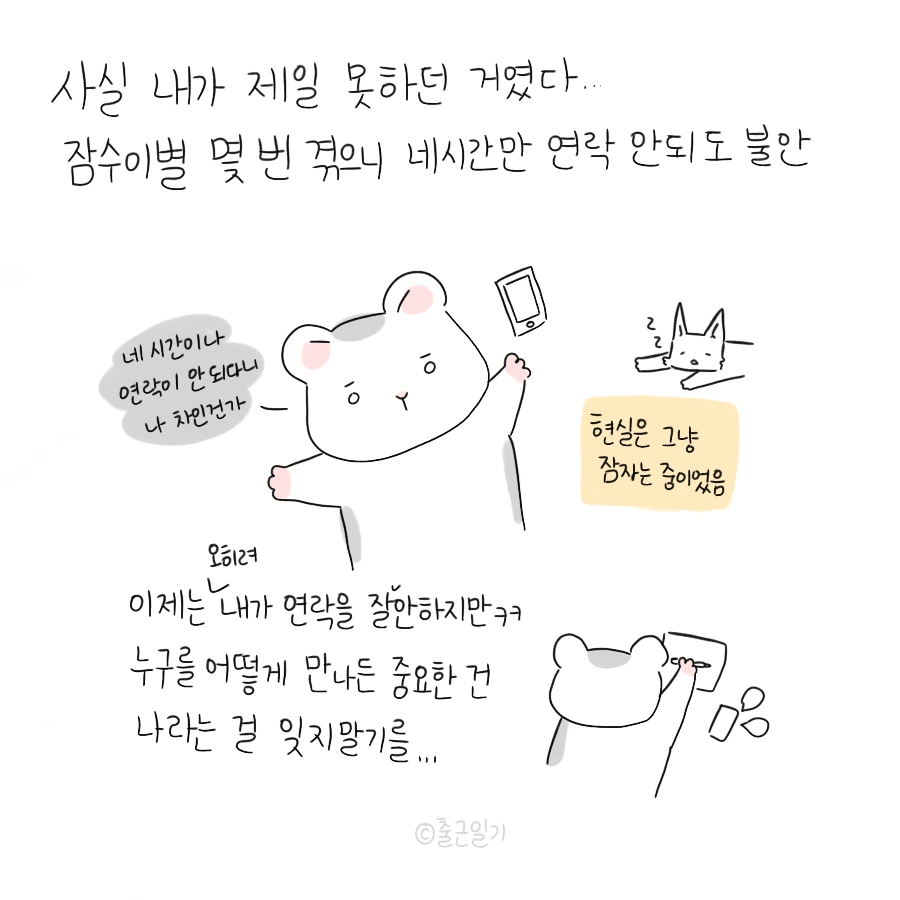 사실 내가 제일 못하던 거였다...
잠수이별 몇 번 겪으니 네시간만 연락 안되도 불안
네 시간이나
연락이 안 되다니
나 차인건가
z
z
현실은 그냥
잠자는 중이었음
오히려
이제는 내가 연락을 잘안하지만ㅋㅋ
누구를 어떻게 만나든 중요한 건
나라는 걸 잊지말기를...
©출근일기